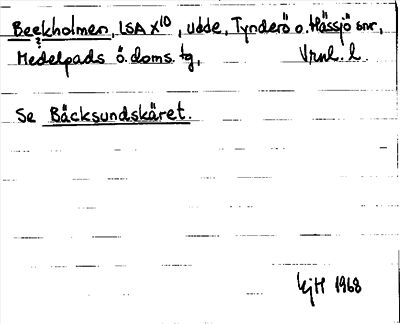 Beckholmen, LSA X10, udde, Tynderö o. Hässjö snr,
Medelpads ö. doms. tg, Vrnl. l.
Se Bäcksundskäret.
KjH 1968